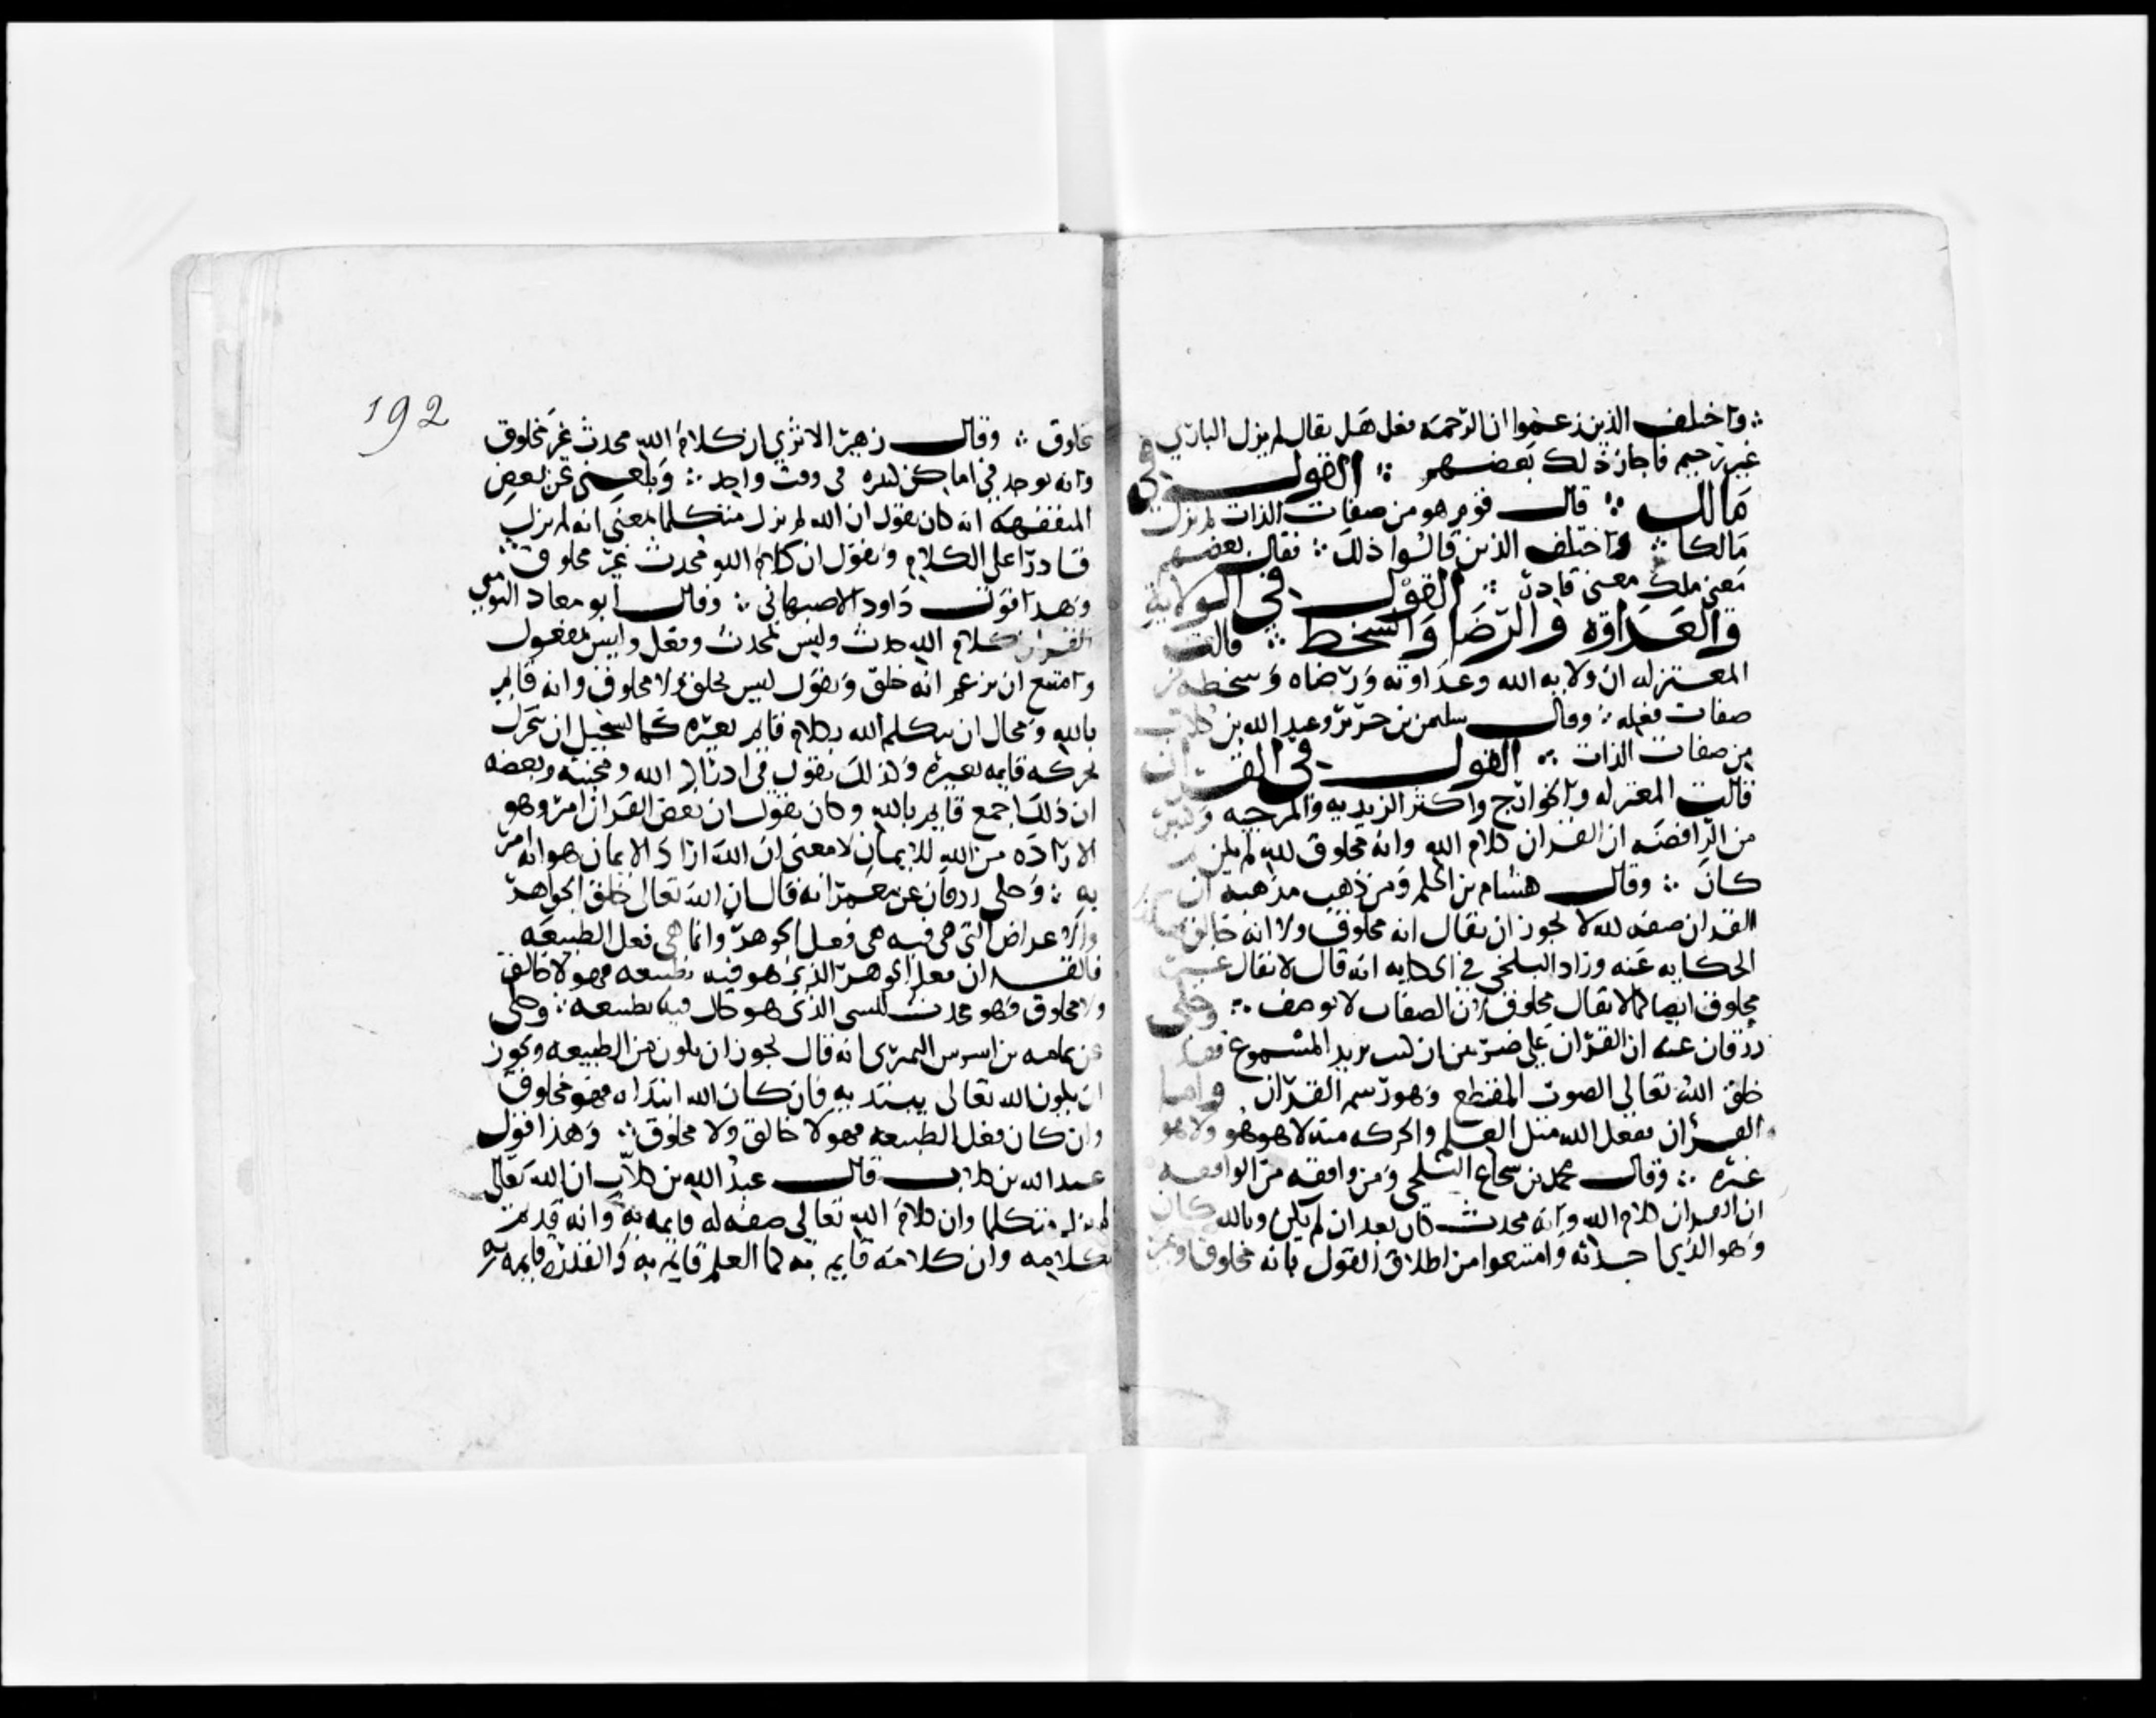 واختلف الذين زعموا ان الرحمة فعل هل يقال لم يزل الباري
غير رحيم فاجاز ذلك بعضهم ∴ القول في
مالك ∴ قال قوم هو من صفات الذات لم يزل
مالكا ∴ واختلف الذين قالوا ذلك ∴ فقال بعضهم
معنى ملك معنى قادر ∴ القول في الولاية
والعداوة والرضا والسخط ∴ قالت
المعتزله ان ولايه الله وعداوته ورضاه وسخطه من
صفات فعله ∴ وقال سليمن بن جرير وعبد الله بن كلاب
من صفات الذات ∴ القول في القران
قالت المعتزله والخوارج واكثر الزيديه والمرجيه وكثير
من الرافضه ان القران كلام الله وانه مخلوق لله لم يكن
كان ∴ وقال هشام بن الحكم ومن ذهب مذهبه ان
القران صفه لله لا يجوز ان يقال انه مخلوق ولا انه خالق
الحكايه عنه وزاد البلخي في الحكايه انه قال لا يقال غير
مخلوق ايضا كما لا يقال مخلوق لان الصفات لا توصف ∴ وحكى
زرقان عنه ان القران على ضربين ان كنت تريد المسموع فقد
خلق الله تعالى الصوت المقطع وهو رسم القران واما
القران ففعل الله مثل العلم والحركه منه لا هو هو ولا هو
غيره ∴ وقال محمد بن شجاع الثلجي ومن وافقه من الواقفه
ان القران كلام الله وانه محدث كان بعد ان لم يكن وبالله كان
وهو الذي احدثه وامتنعوا من اطلاق القول بانه مخلوق او غير
192
مخلوق ∴ وقال زهير الاثري ان كلام الله محدث غير مخلوق
وانه يوجد في اماكن كثيره في وقت واحد ∴ وبلغني عن بعض
المتفقهه انه كان يقول ان الله لم يزل متكلما بمعنى انه لم يزل
قادرا على الكلام ويقول ان كلام الله محدث غير مخلوق
وهذا قول داود الاصبهاني ∴ وقال ابو معاذ التومني
القران كلام الله حدث وليس بمحدث وفعل وليس بمفعول
وامتنع ان يزعم انه خلق ويقول ليس بخلق ولا مخلوق وانه قايم
بالله ومحال ان يتكلم الله بكلام قايم بغيره كما يستحيل ان يتحرك
بحركه قايمه بغيره وكذلك يقول في اراده الله ومحبته وبغضه
ان ذلك اجمع قايم بالله وكان يقول ان بعض القران امر وهو
الاراده من الله للايمان لان معنى ان الله اراد الايمان هو انه امر
به ∴ وحكى زرقان عن معمر انه قال ان الله تعالى خلق الجواهر
والاعراض التي هي فيه هي فعل الجوهر وانما هي فعل الطبيعه
فالقران فعل الجوهر الذي هو فيه بطبيعه فهو لا خالق
ولا مخلوق فهو محدث للشي الذي هو حال فيه بطبيعه ∴ وحكى
عن ثمامه بن اشرس النميري انه قال يجوز ان يكون من الطبيعه ويجوز
ان يكون الله تعالى يبتديه فان كان الله ابتداه فهو مخلوق
وان كان فعل الطبيعه فهو لا خالق ولا مخلوق ∴ وهذا قول
عبد الله بن كلاب قال عبد الله بن كلاب ان الله تعالى
لم يزل متكلما وان كلام الله تعالى صفه له قايمه به وانه قديم
بكلامه وان كلامه قايم به كما العلم قايم به والقدره قايمه به